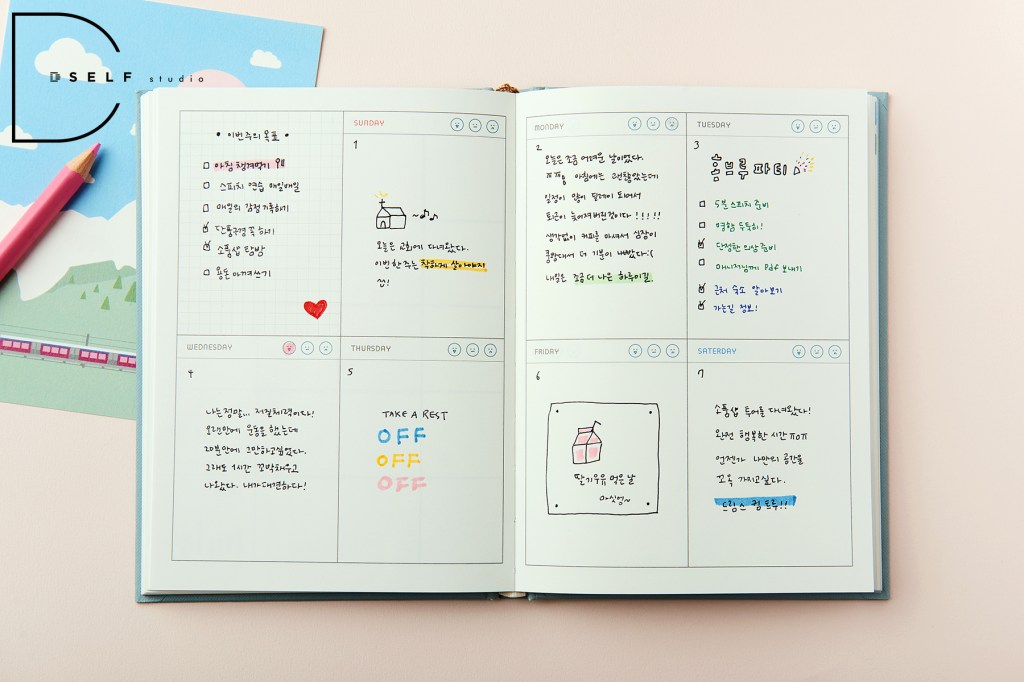 DSELF studio
• 이번주의 목표 •
아침 챙겨먹기
스피치 연습 매일매일
매일의 감정 기록하기
단풍구경 꼭 하기
소품샵 탐방
용돈 아껴쓰기
SUNDAY
1
오늘은 교회에 다녀왔다.
이번 한 주는 착하게 살아야지
MONDAY
2
오늘은 조금 어려운 날이었다.
ㅠㅠ 아침에는 괜찮았는데
일정이 많이 딜레이 되어서
퇴근이 늦어져버린것이다!!!!!
생각없이 커피를 마셔서 심장이
쿵쾅대서 더 기분이 나빴다:(
내일은 조금 더 나은 하루이길.
TUESDAY
3
홈브루파티
5분 스피치 준비
명함 두둑히!
단정한 의상 준비
매니저님께 Pdf 보내기
근처 숙소 알아보기
가는길 정보!
WEDNESDAY
4
나는 정말... 저질체력이다!
오랜만에 운동을 했는데
20분만에 그만하고싶었다.
그래도 1시간 꼬박채우고
나왔다. 내가 대견하다!
THURSDAY
5
TAKE A REST
OFF
OFF
OFF
FRIDAY
6
딸기우유 먹은 날
마싯엉~
SATERDAY
7
소품샵 투어를 다녀왔다!
완전 행복한 시간 ㅠㅇㅠ
언젠가 나만의 공간을
꼬옥 가지고싶다.
드림스 컴 트루!!